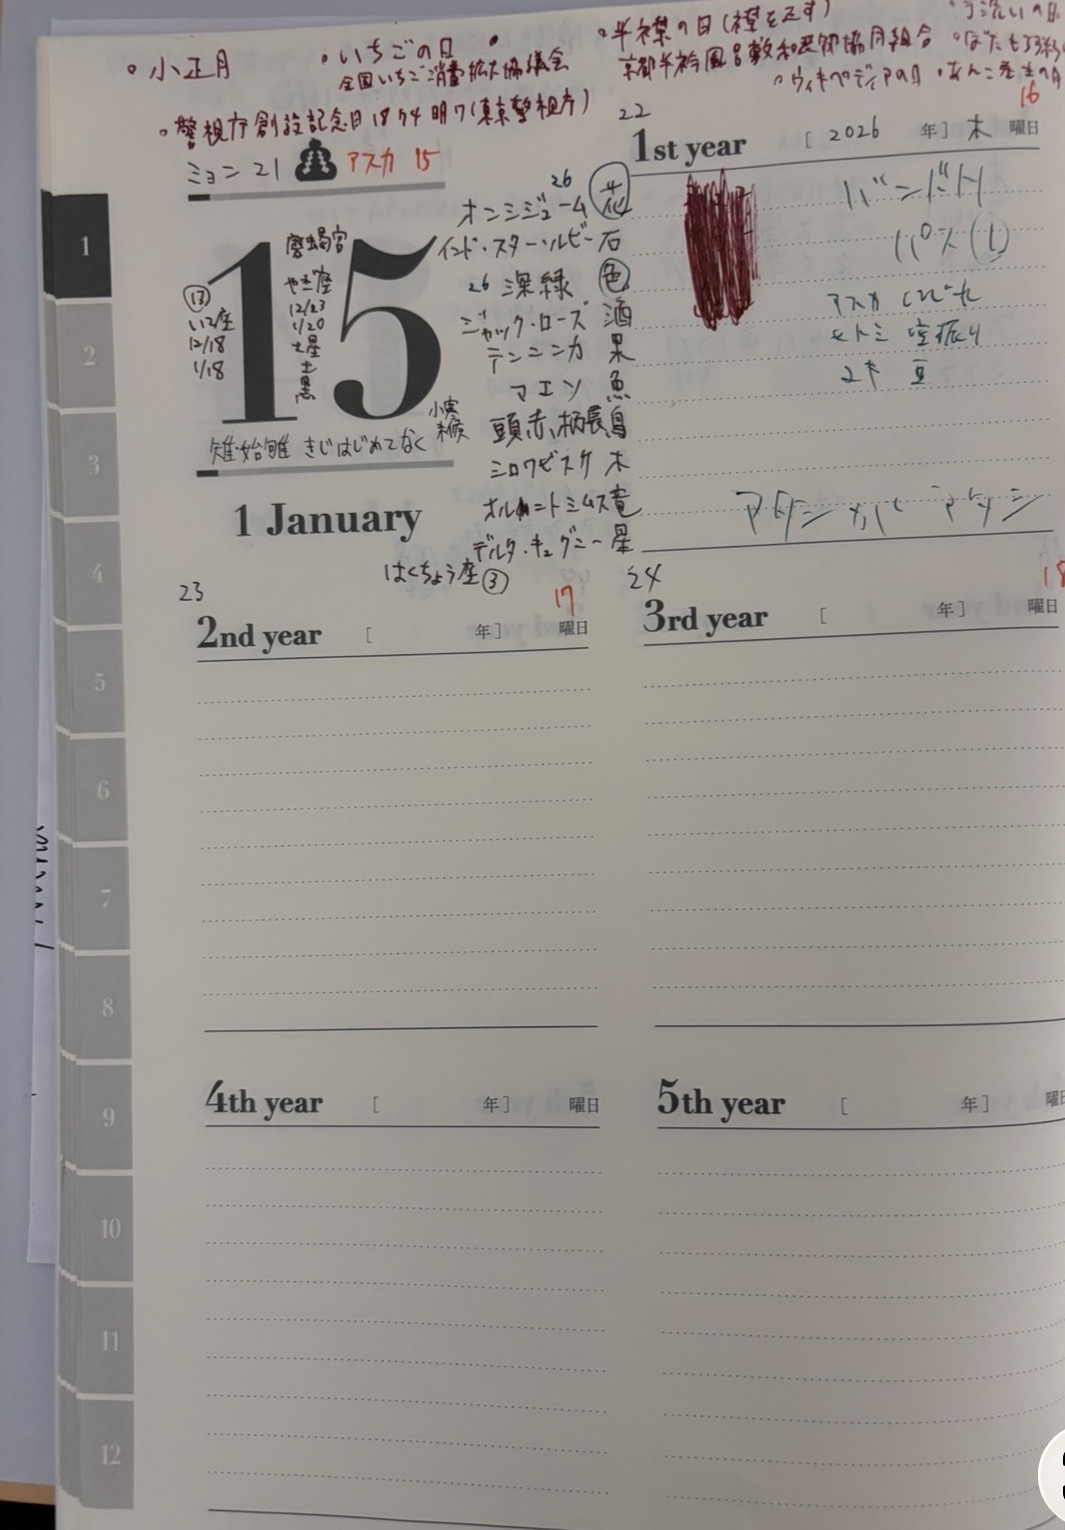 ・小正月
・いちごの日
全国いちご消費拡大協議会
・半襟の日(襟を正す)
京都半衿風呂敷和装卸協同組合
・手洗いの日
・ウィキペディアの日
・警視庁創設記念日 1874 明7(東京警視庁)
ミョン 21 アスカ 15
22
16
1st year [ 2026 年] 木 曜日
15
磨蝎宮
やぎ座
12/23
1/20
土星
土
黒
⑬
いて座
12/18
1/18
雉始雊 きじはじめてなく
小寒
末候
1 January
26
オンシジューム 花
インド・スタールビー 石
26 深緑 色
ジャック・ローズ 酒
テンニンカ 果
マエソ 魚
頭赤柄長 鳥
シロワビスケ 木
オルニトミムス 竜
デルタ・キュグニー 星
はくちょう座③
アスカ
ヒトミ 空振り
ユキ 豆
23
17
2nd year [ 年] 曜日
24
18
3rd year [ 年] 曜日
4th year [ 年] 曜日
5th year [ 年] 曜日
1
2
3
4
5
6
7
8
9
10
11
12